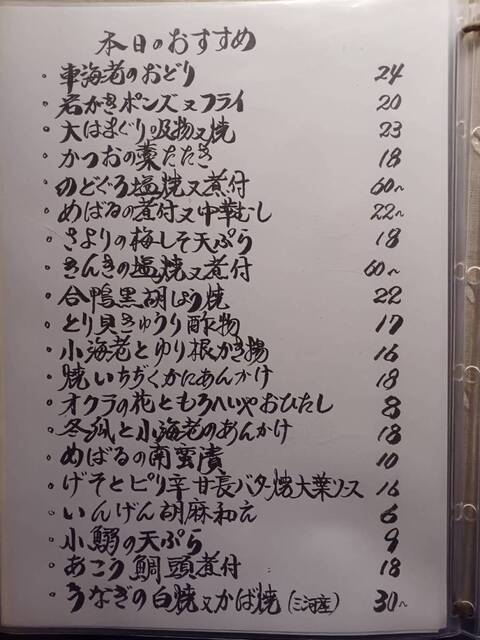 本日のおすすめ
・車海老のおどり 24
・岩がきポンズ又フライ 20
・大はまぐり吸物又焼 23
・かつおの藁たたき 18
・のどぐろ塩焼又煮付 60~
・めばるの煮付又中華むし 22~
・さよりの梅しそ天ぷら 18
・きんきの塩焼又煮付 60~
・合鴨黒胡しょう焼 22
・とり貝きゅうり酢物 17
・小海老とゆり根かき揚 16
・焼いちぢくかにあんかけ 18
・オクラの花ともろへいやおひたし 8
・冬瓜と小海老のあんかけ 18
・めばるの南蛮漬 10
・げそとピリ辛甘長バター焼大葉ソース 16
・いんげん胡麻和え 6
・小鰯の天ぷら 9
・あこう鯛頭煮付 18
・うなぎの白焼又かば焼(三河産) 30~